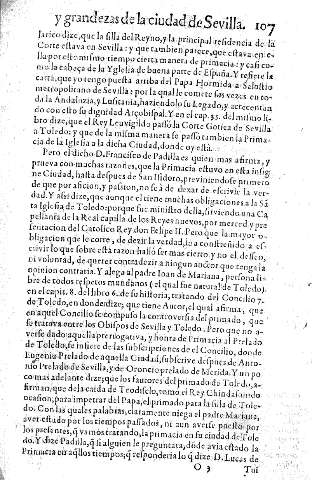 y grandezas de la ciudad de Sevilla. 107
Jarico dize, que la silla del Reyno, y la principal residencia de la
Corte estava en Sevilla: y que tambien parece, que estava en e-
lla por esse mismo tiempo cierta manera de primacia: y casi co-
mo la cabeça de la Yglesia de buena parte de España. Y refiere la
carta, que yo tengo puesta arriba del Papa Hormida a Salustio
metropolitano de Sevilla: por la qual le comete sus vezes en to-
da Andalozia, y Lusitania, haziendolo su Legado, y acrecentan
do con ello su dignidad Arçobispal. Y en el cap. 53. del mismo li-
bro dize, que el Rey Leuvigildo passò la Corte Gotica de Sevilla
a Toledo: y que de la misma manera se passò tambien la Prima-
cia de la Yglesia a la dicha Ciudad, donde oy està.
Pero el dicho D. Francisco de Padilla es quien mas afirma, y
prueva con muchas razones, que la Primacia estuvo en esta insig
ne Ciudad, hasta despues de San Isidro, previniendose primero
de que por aficion, y passion, no se à de dexar de escrivir la ver-
dad. Y assi dize, que aunque el tiene muchas obligaciones a la Sã
ta Yglesia de Toledo: porque fue ministro della, sirviendo una Ca
pellania de la Real capilla de los Reyes nuevos, por merced y pre
sentacion del Catolico Rey don Felipe II. Pero que la mayor o-
bligacion que le corre, de dezir la verdad, lo a constreñido a es-
crivir lo que sobre esta razon hallò ser mas cierto, y no el desseo,
ni voluntad, de querer contradezir a ningun auctor que tenga la
opinion contraria. Y alega al padre Ioan de Mariana, persona li-
bre de todos respetos mundanos (el qual fue natural de Toledo).
en el capit. 8. del libro 6. de su historia, tratando del Concilio 7.
de Toledo, en donde dize; que tiene Autor, el qual afirma, que
en aquel Concilio se compuso la controversia del primado, que
se tratava entre los Obispos de Sevilla y Toledo. Pero que no a-
verse dado aquella prerrogativa, y honra de Primacia al Prelado
de Toledo, se infiere de las subscripciones de el Concilio, donde
Eugenio Prelado de aquella Ciudad, subscrive despues de Anto-
nio Prelado de Sevilla, y de Oroncio prelado de Merida. Y un po
co mas adelante dize; que los fautores del primado de Toledo, a-
firman, que de la caida de Teodisclo, tomò el Rey Chindasundo
ocasion, para impetrar del Papa, el primado para la silla de Tole-
do. Con las quales palabras, claramente niega el padre Mariana,
aver estado por los tiempos passados, ni aun averse puesto por
los presentes, q̃ va mostrando, la primacia en su ciudad de Tole
do. Y dize Padilla, q̃ si alguien le preguntara, dõde avia estado la
Primacia en aq̃llos tiempos; q̃ responderia lo q̃ dize D. Lucas de
O 3 Tui